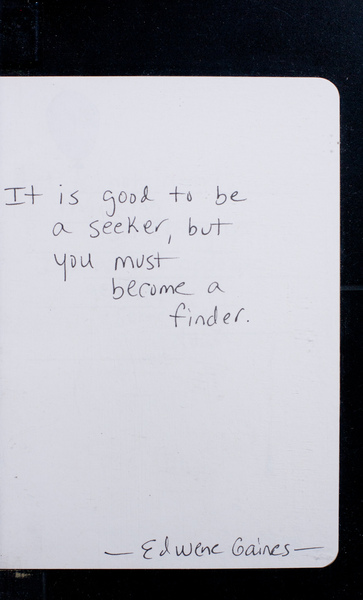 It is good to be
a seeker, but
you must
become a
finder.
— Edwene Gaines —